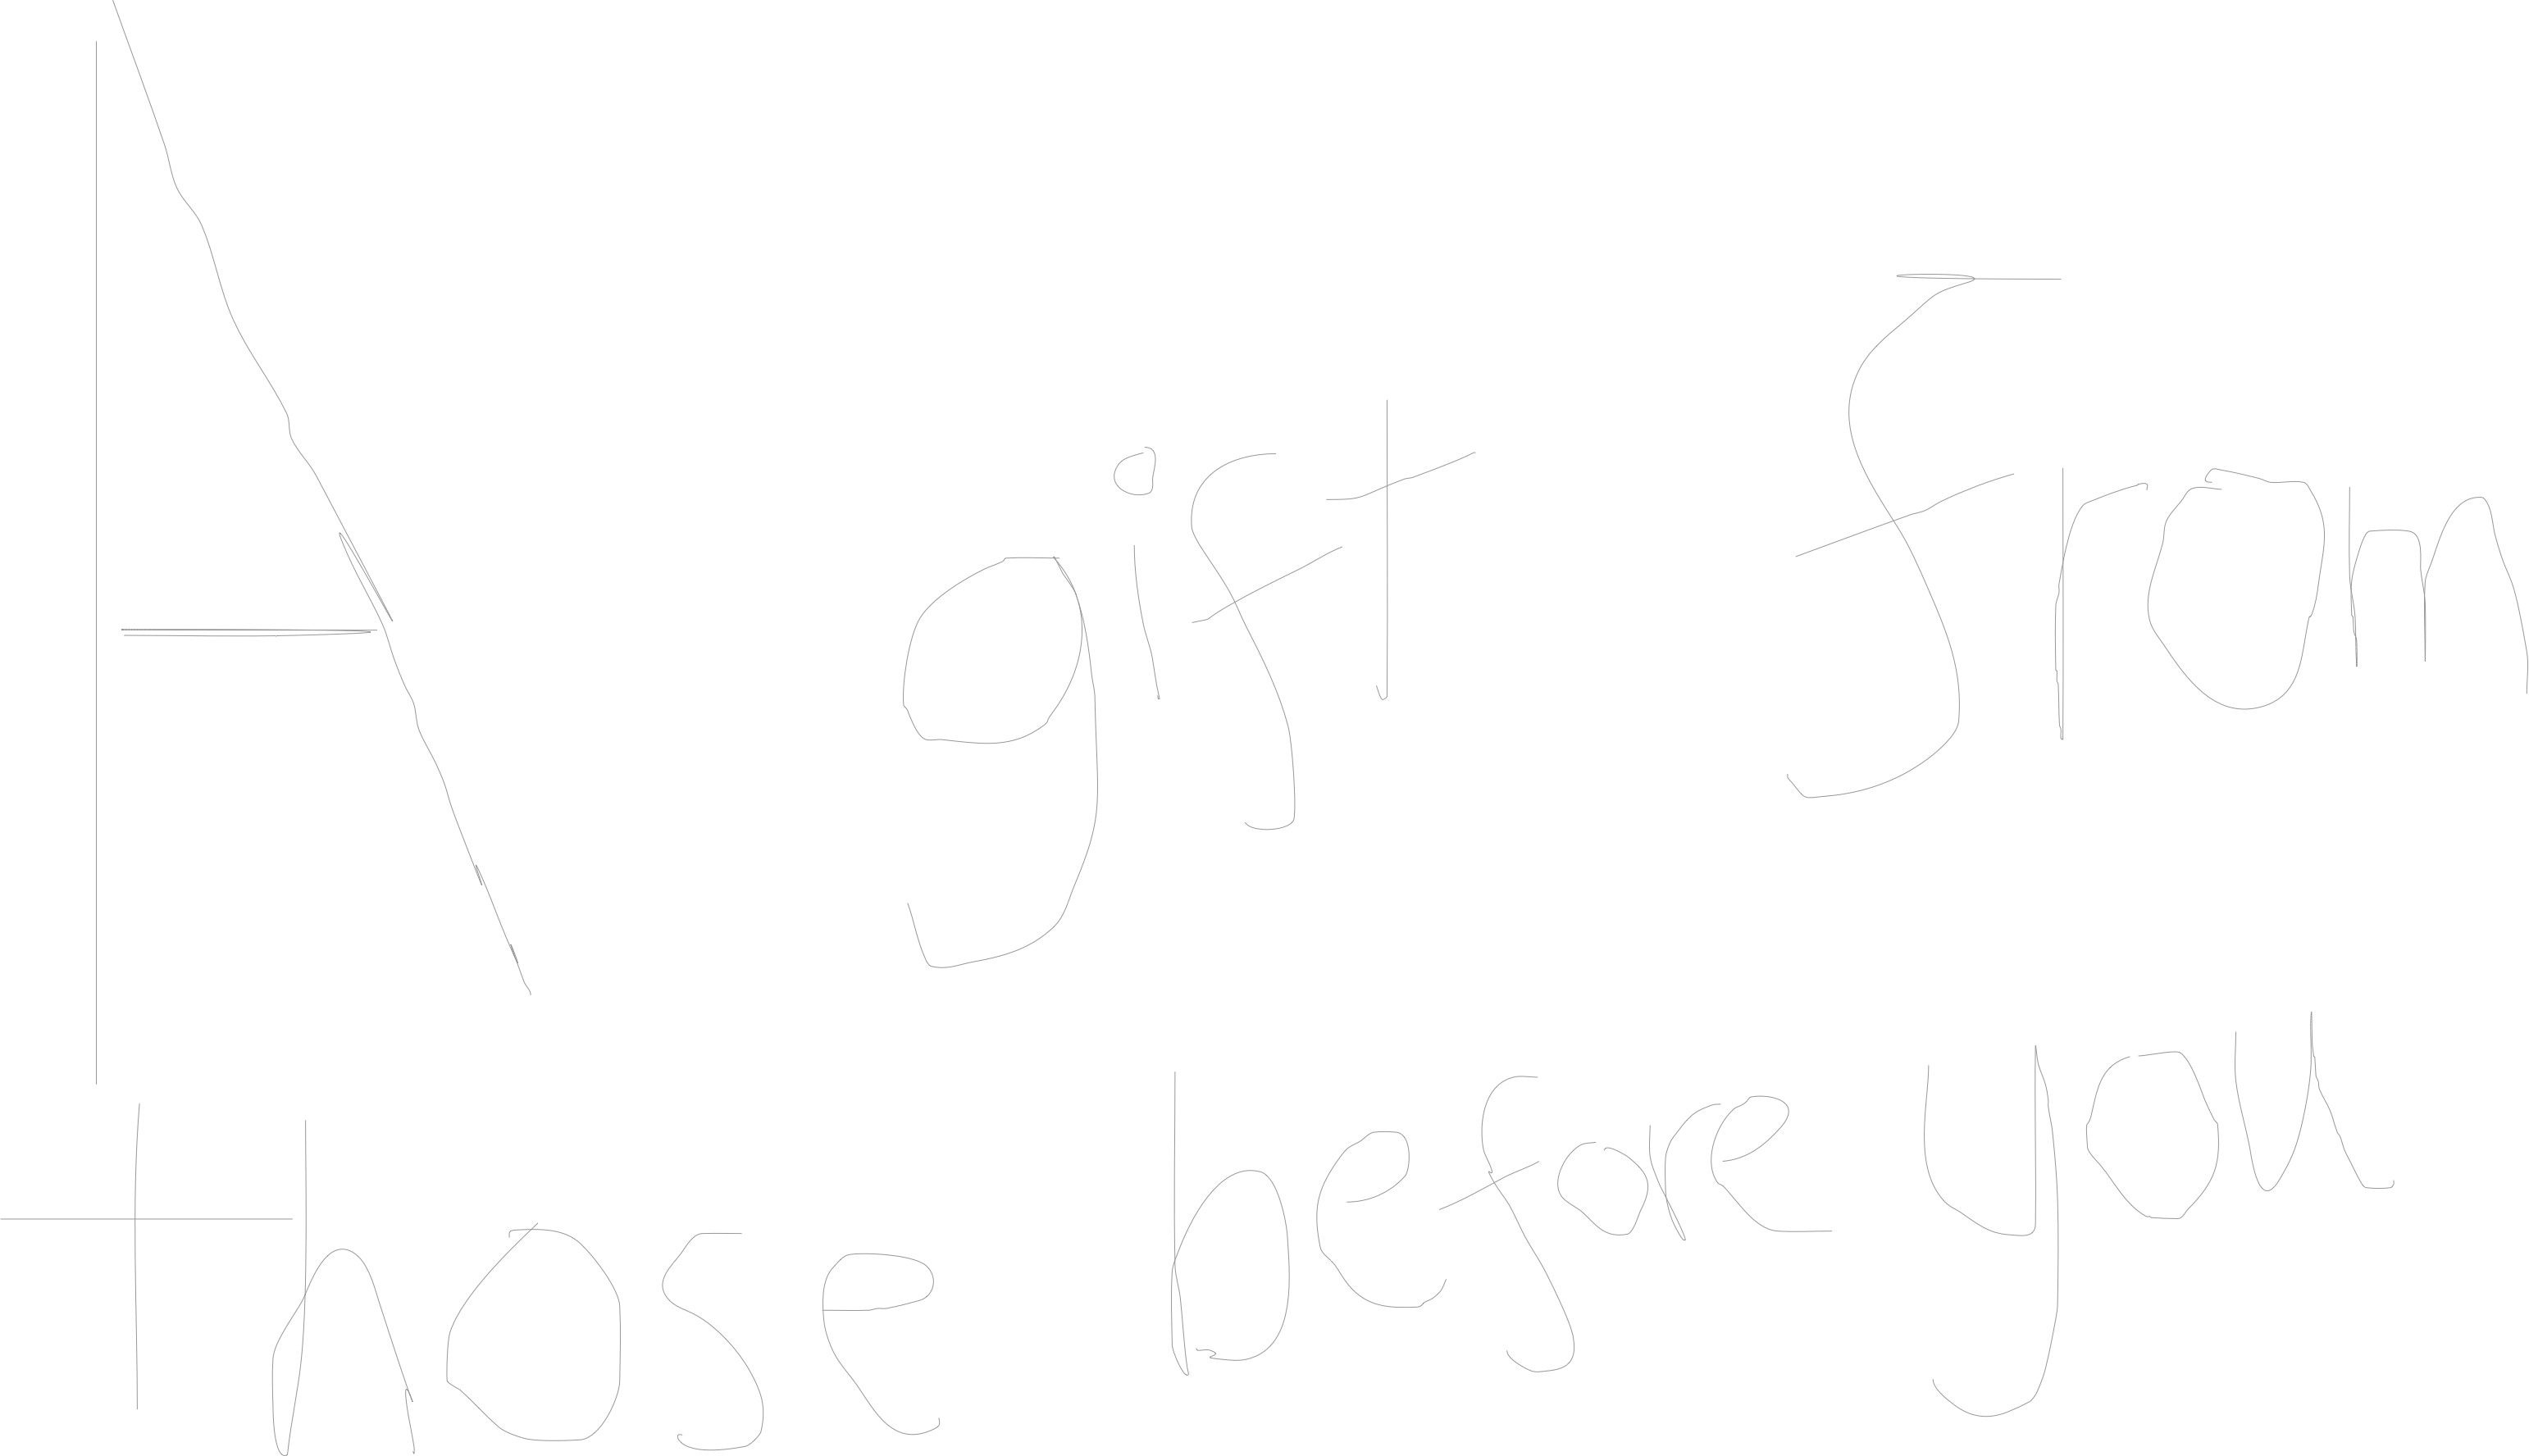 A gift from
those before you